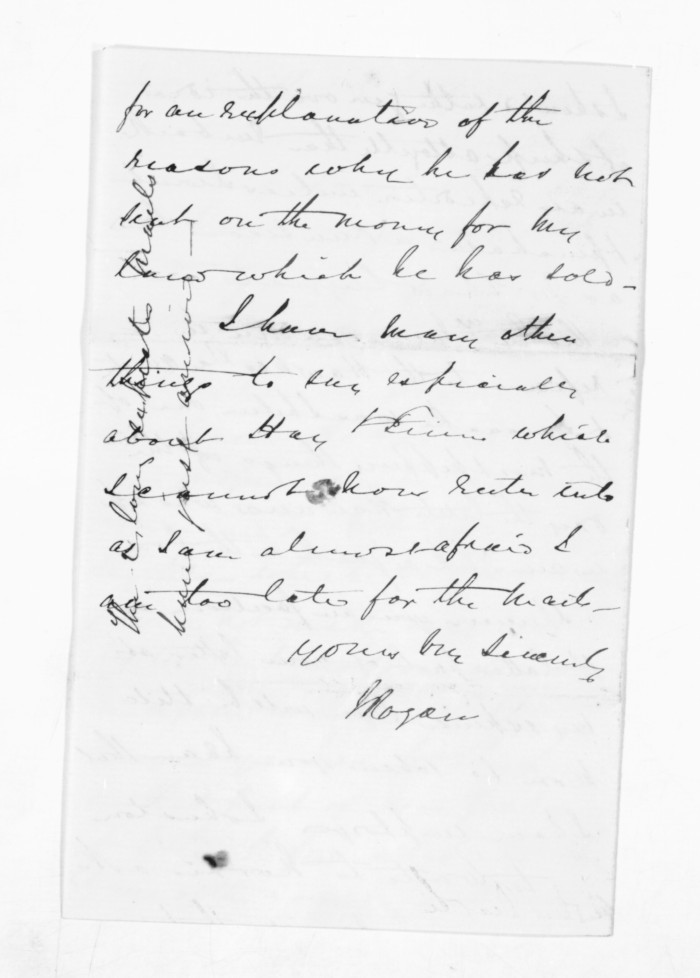 for an explanation of the
reasons why he has not
sent on the money for my
land which he has sold -
I have many other
things to say especially
about Hay which
I cannot now enter into
as I am almost afraid I
am too late for the mail -
yours very sincerely
J Rogan
The duplicates mails
have just arrived